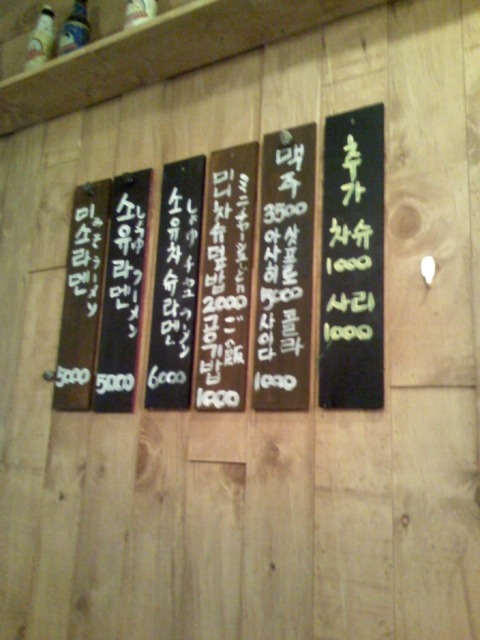 미소라멘
みそラーメン
5000
소유라멘
しょゆラーメン
5000
소유차슈라멘
しょゆチャシュラーメン
6000
미니차슈덮밥 2000
공기밥
ご飯
1000
맥주
3500 삿포로
아사히 5000 콜라
사이다
1000
추가
차슈
1000
사리
1000